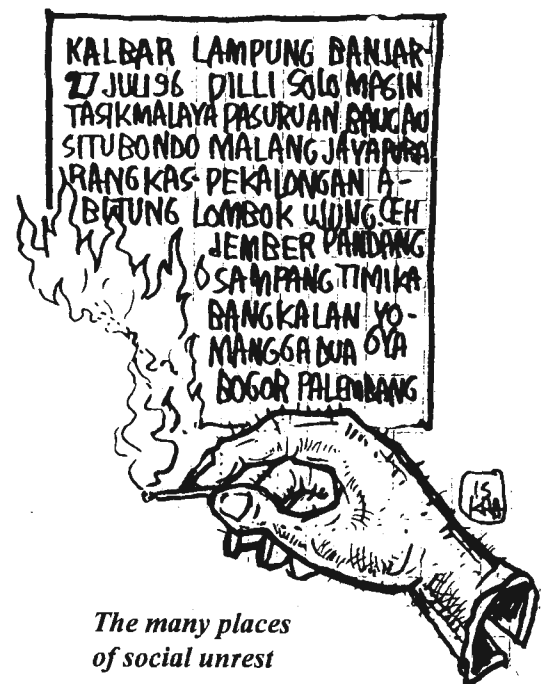 KALBAR LAMPUNG BANJAR-
27 JULI 96 DILLI SOLO MASIN
TASIKMALAYA PASURUAN BANGAU
SITUBONDO MALANG JAYAPURA
RANGKAS- PEKALONGAN A-
BITUNG LOMBOK UJUNG. CEH
JEMBER PANDANG
SAMPANG TIMIKA
BANGKALAN YO-
MANGGA DUA GYA
BOGOR PALEMBANG
IS
KRA
The many places
of social unrest